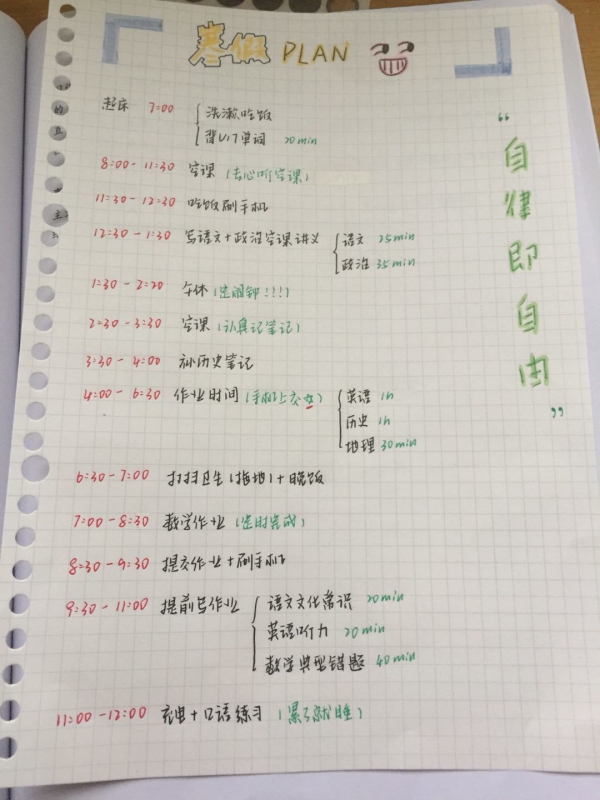 寒假 PLAN
起床 7:00 洗漱吃饭
背U7单词 20min
8:00-11:30 空课(去心听空课)
11:30-12:30 吃饭刷手机
12:30-1:30 写语文+政治空课讲义 语文 25min
政治 35min
1:30-2:20 午休(定闹钟!!!)
2:30-3:30 空课(认真记笔记)
3:30-4:00 补历史笔记
4:00-6:30 作业时间(手机上交) 英语 1h
历史 1h
地理 30min
6:30-7:00 打扫卫生(拖地)+晚饭
7:00-8:30 数学作业(定时完成)
8:30-9:30 提交作业+刷手机
9:30-11:00 提前写作业 语文文化常识 20min
英语听力 20min
数学典型错题 40min
11:00-12:00 充电+口语练习(累了就睡)
“自律即自由”